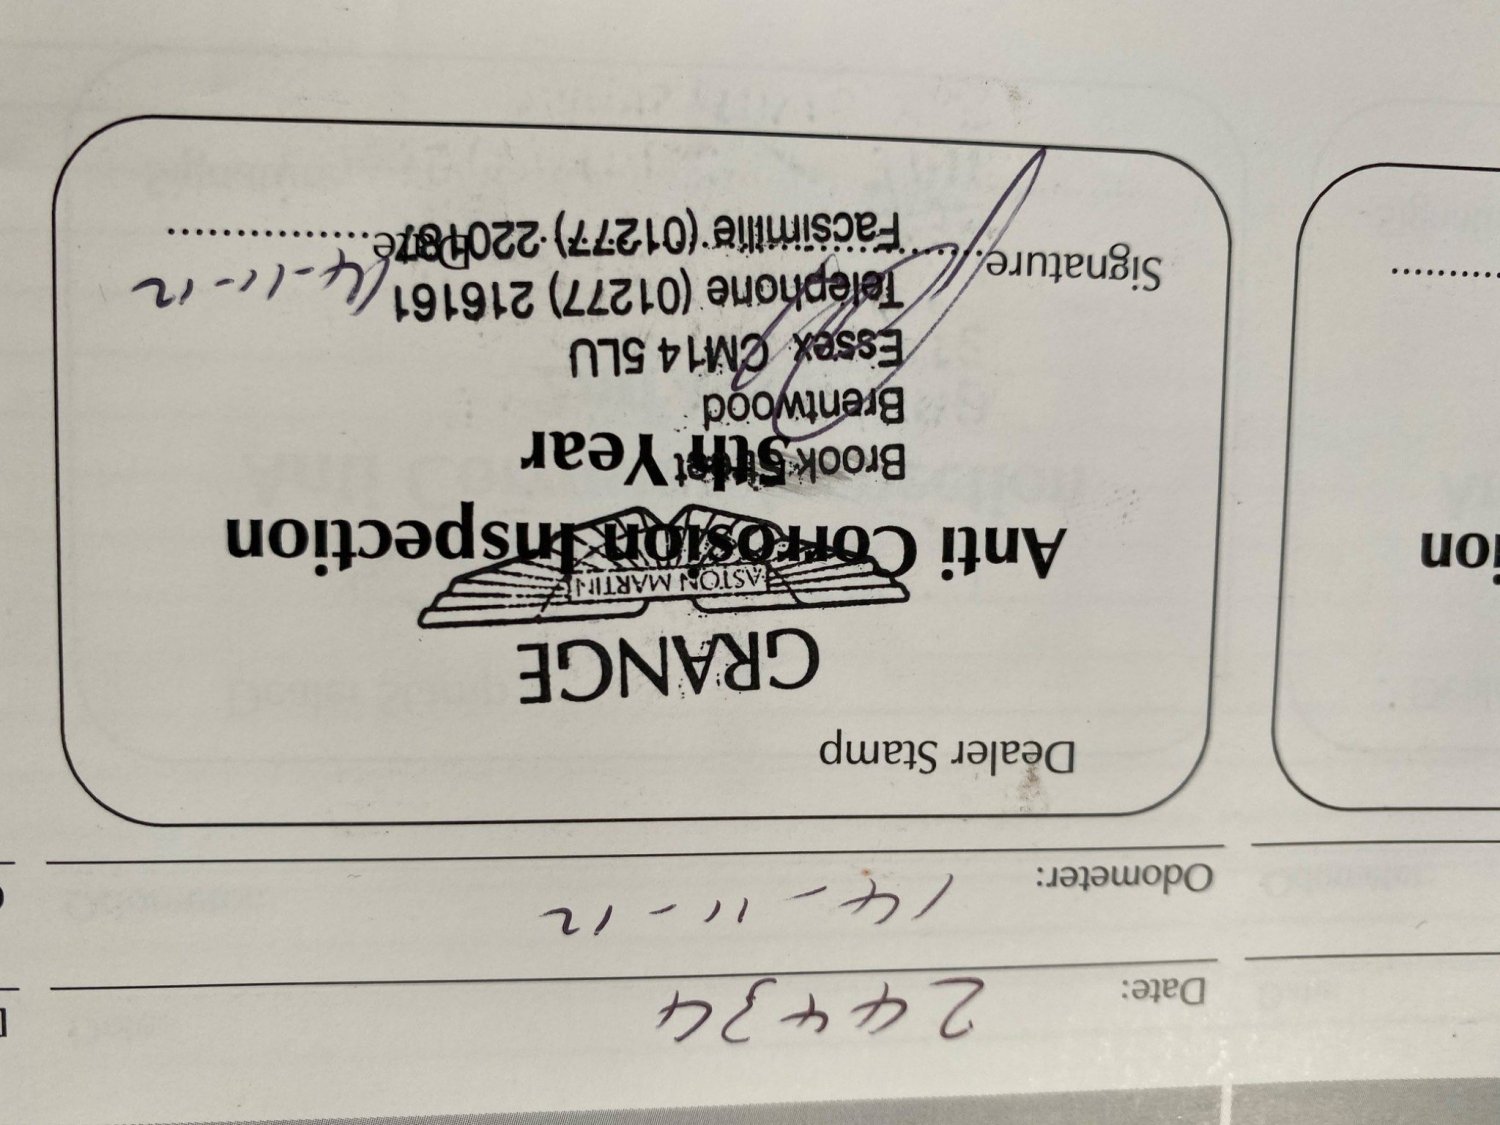 Date: 24434
Odometer: 14-11-12
Dealer Stamp
GRANGE
ASTON MARTIN
Anti Corrosion Inspection
5th Year
Brook Street
Brentwood
Essex CM14 5LU
Telephone (01277) 216161
Facsimilie (01277) 220187
Signature Date 14-11-12
ion